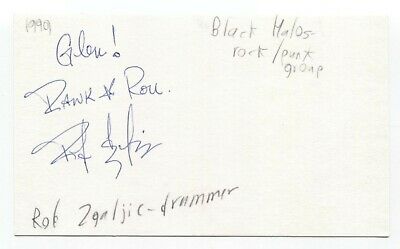 1999
Glen!
RAWK & ROLL.
Black Halos-
rock/punk
group
Rob Zgaljic-drummer